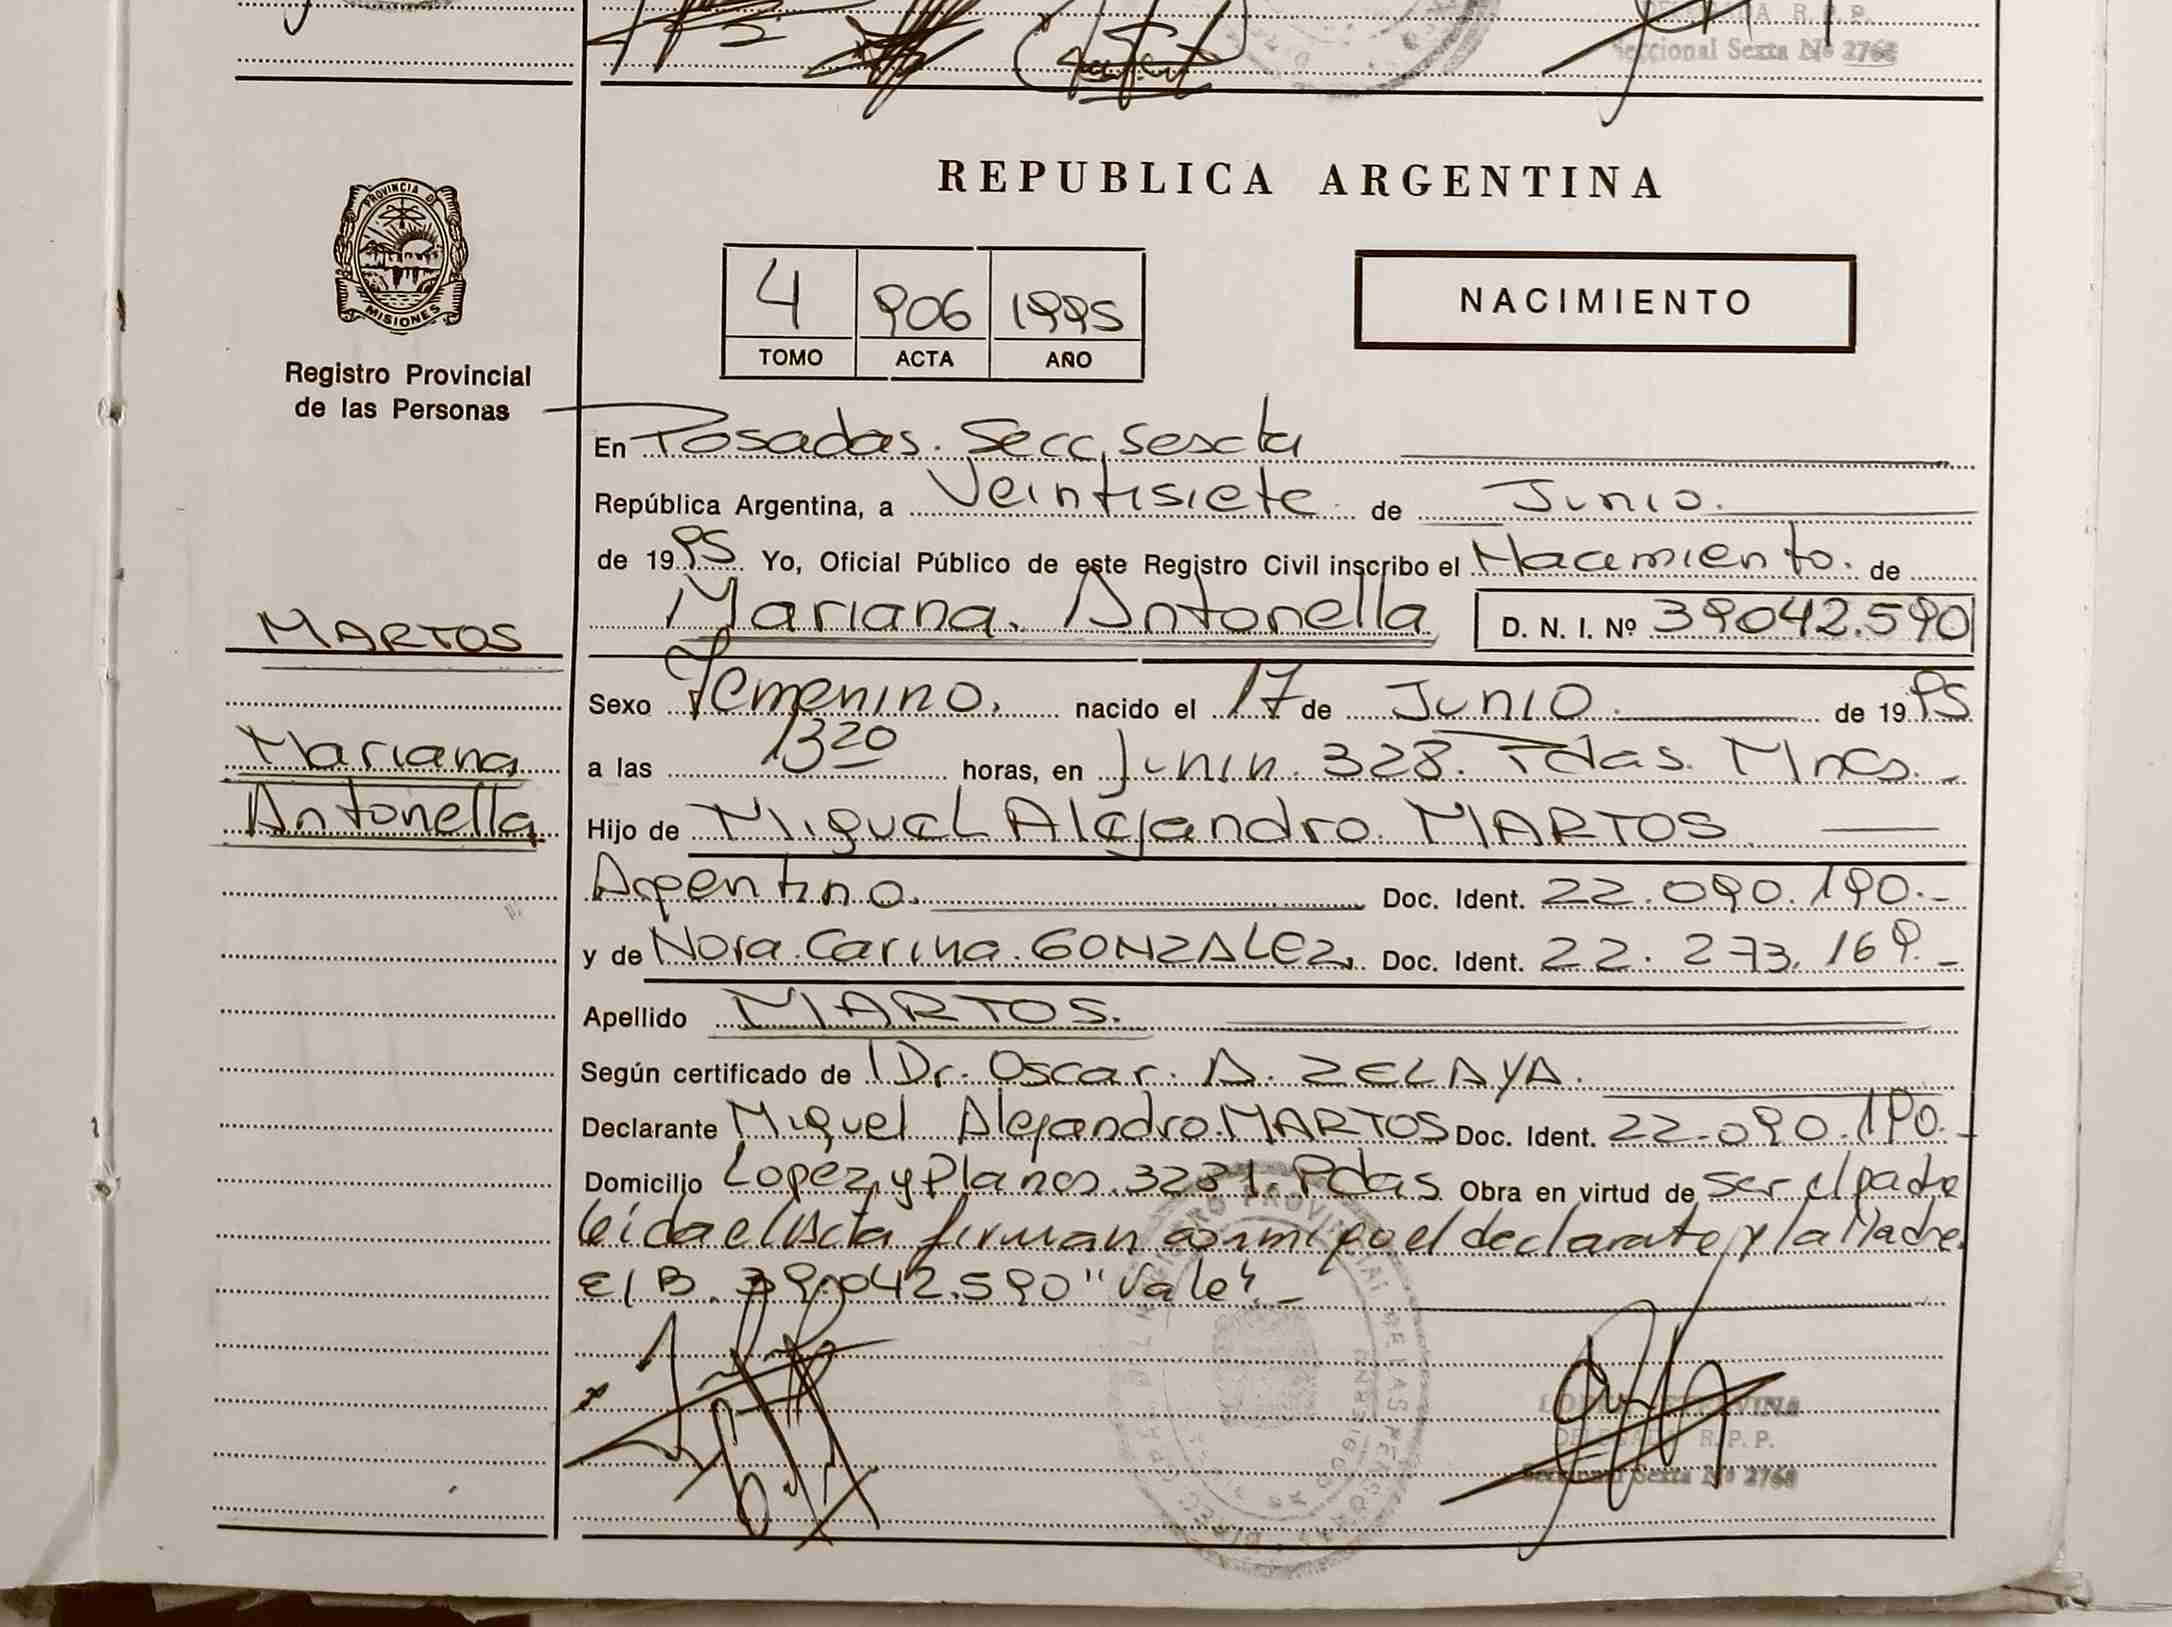 R. P. P.
Seccional Sexta Nº 2768
REPUBLICA ARGENTINA
PROVINCIA D
MISIONES
Registro Provincial
de las Personas
4 906 1995
TOMO ACTA AÑO
NACIMIENTO
En Posadas. Secc. Sexcta
República Argentina, a Veintisiete de Junio.
de 1995 Yo, Oficial Público de este Registro Civil inscribo el Nacimiento. de
Mariana. Antonella D. N. I. Nº 39042.590
MARTOS
Mariana
Antonella
Sexo Femenino. nacido el 17 de Junio. de 1995
a las 13 20 horas, en Junin. 328. Pdas. Mnes.
Hijo de Miguel Alejandro. MARTOS
Argentino. Doc. Ident. 22.090.190.-
y de Nora. Carina. GONZALEZ. Doc. Ident. 22. 273. 169.-
Apellido MARTOS.
Según certificado de Dr. Oscar. A. ZELAYA.
Declarante Miguel Alejandro. MARTOS Doc. Ident. 22.090.190.-
Domicilio Lopez y Planes. 3231. Pdas Obra en virtud de ser el padre
leida el Acta firman conmigo el declarate y la Madre.
E/B. 39.042.590 "Vale".-
DELEGADA R. P. P.
Seccional Sexta Nº 2768